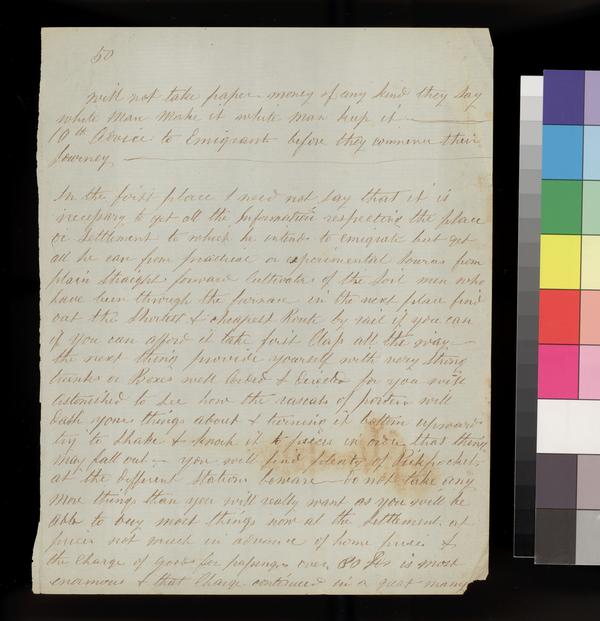 50
will not take paper money of any kind they say
white man make it white man keep it
10th Advice to Emigrant before they commence their
Journey
In the first place I need not say that it is
necessary to get all the Information respecting the place
or settlement to which he intends to emigrate but get
all he can from practical or experimental sources from
plain straight forward Cultivators of the Soil men who
have been through the furnace in the next place find
out the Shortest & cheapest Route by rail if you can
if you can afford it take first Class all the way
the next thing provide yourself with very strong
trunks or Boxes well Corded & Directed for you will be
astonished to see how the rascals of porters will
dash your things about & turning it bottom upwards
try to shake & knock it to pieces in order that things
may fall out - you will find plenty of Pickpockets
at the different Stations beware do not take any
more things than you will really want as you will be
able to buy most things now at the Settlement at
prices not much in advance of home prices &
the Charge of Goods for passengers over 80 lbs is most
enormous & that Charge continued in a great many